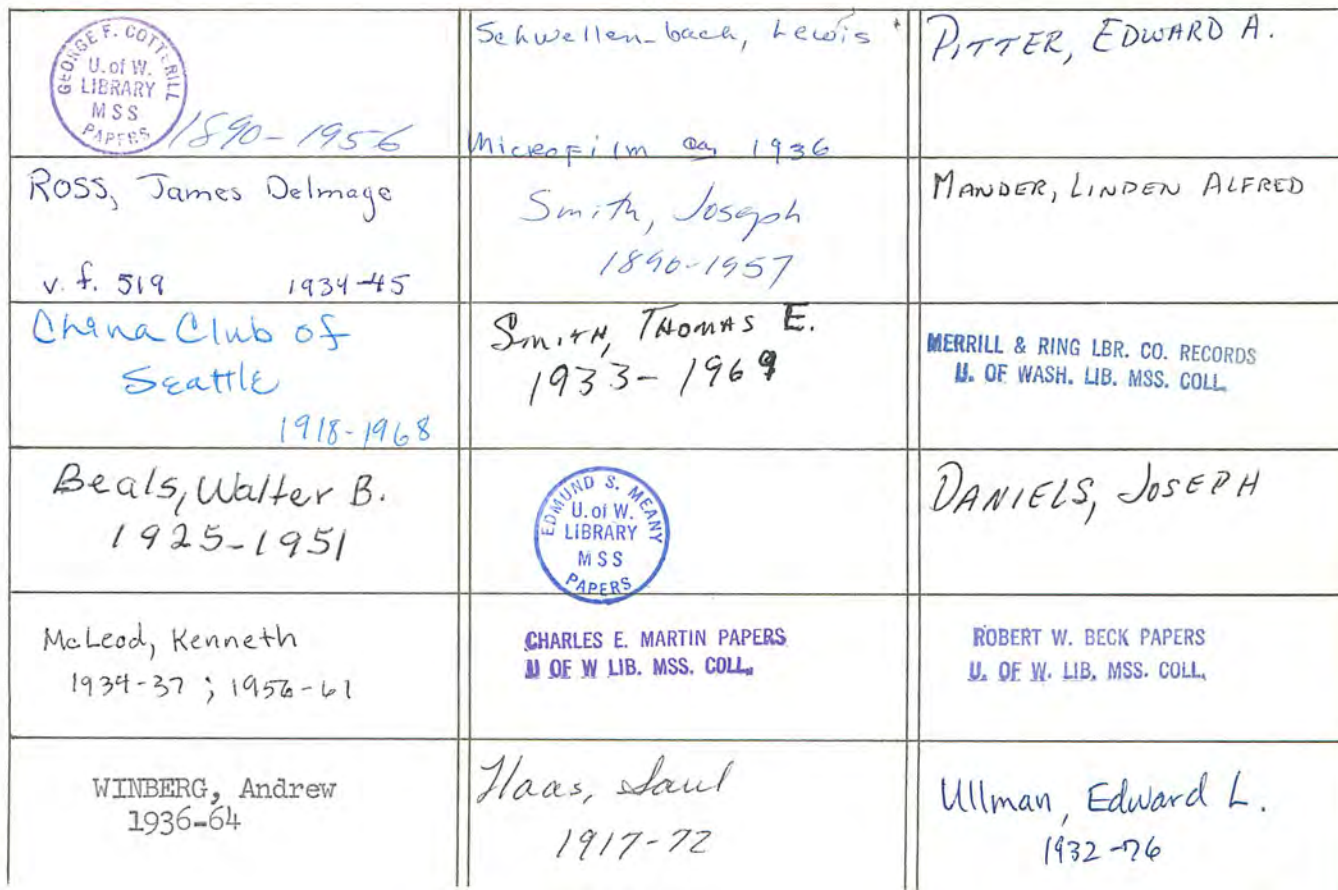 GEORGE F. COTTERILL
U. of W.
LIBRARY
MSS
PAPERS
1890-1956
Schwellen-bach, Lewis
Microfilm 1936
PITTER, EDWARD A.
ROSS, James Delmage
v.f. 519 1934-45
Smith, Joseph
1890-1957
MANDER, LINDEN ALFRED
China Club of
Seattle
1918-1968
SMITH, THOMAS E.
1933-1969
MERRILL & RING LBR. CO. RECORDS
U. OF WASH. LIB. MSS. COLL.
Beals, Walter B.
1925-1951
EDMUND S. MEANY
U. of W.
LIBRARY
MSS
PAPERS
DANIELS, JOSEPH
McLeod, Kenneth
1934-37; 1956-61
CHARLES E. MARTIN PAPERS
U OF W LIB. MSS. COLL.
ROBERT W. BECK PAPERS
U. OF W. LIB. MSS. COLL.
WINBERG, Andrew
1936-64
Haas, Saul
1917-72
Ullman, Edward L.
1932-76